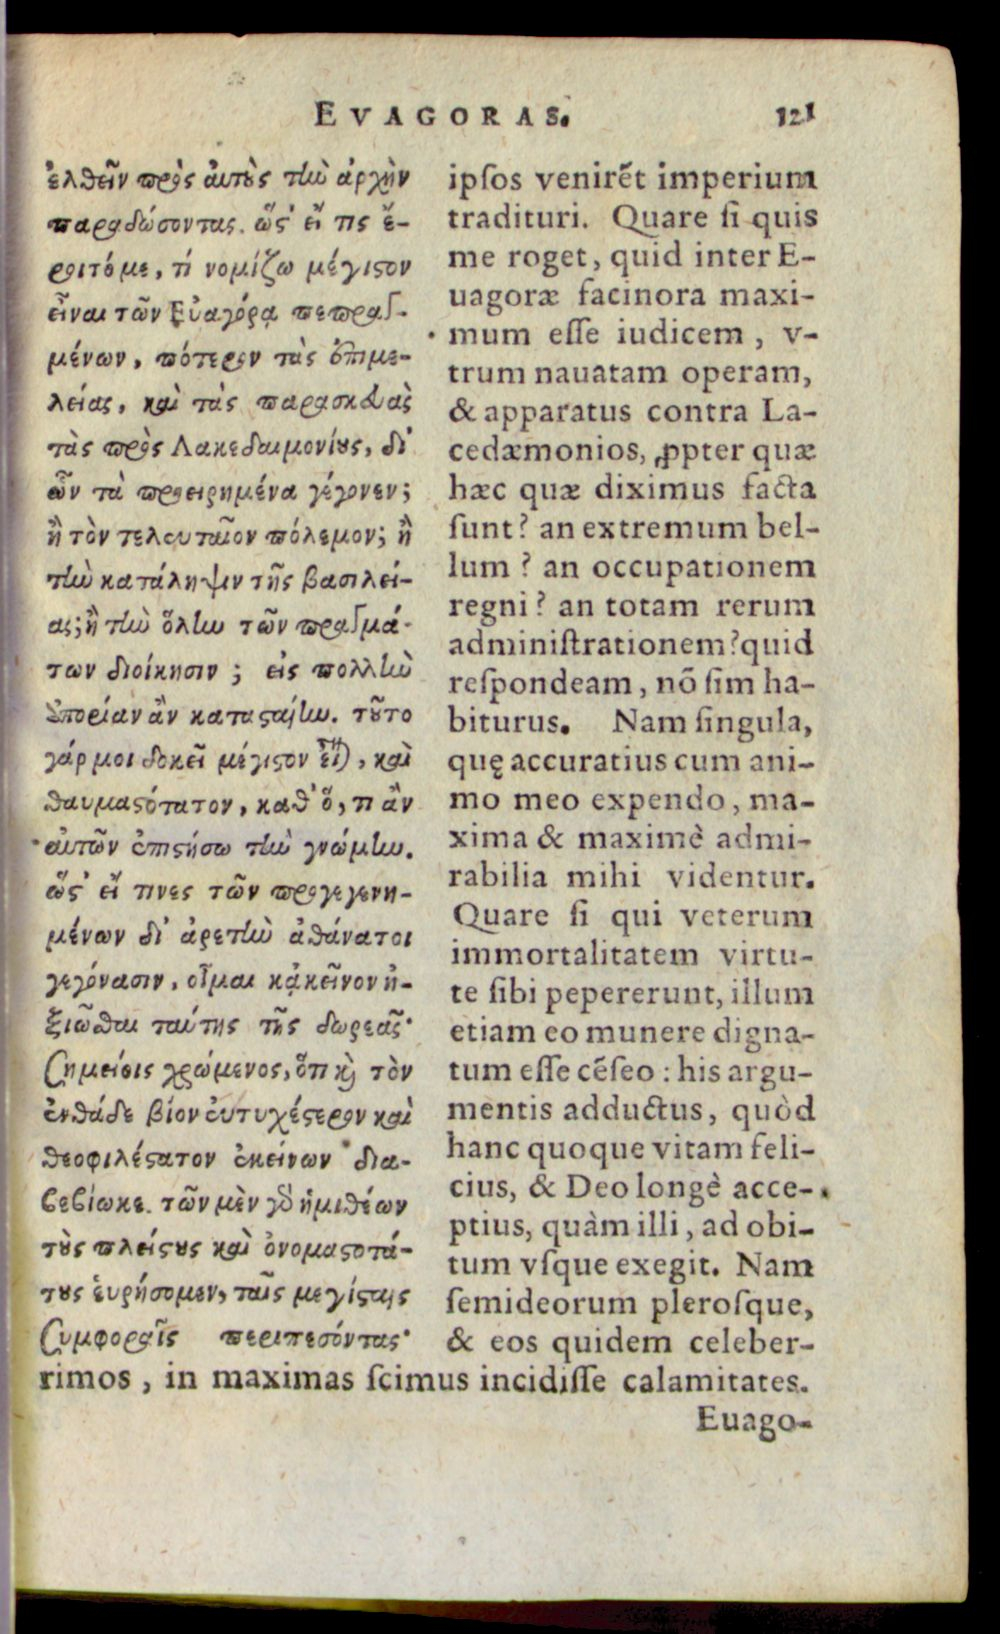 EVAGORAS. 121
ἐλθεῖν πρὸς αὐτοὺς τὴν ἀρχὴν
παραδώσοντας. ὥστ' εἴ τις ἔ-
ροιτό με, τί νομίζω μέγιστον
εἶναι τῶν Εὐαγόρᾳ πεπραγ-
μένων, πότερον τὰς ἐπιμε-
λείας, καὶ τὰς παρασκευὰς
τὰς πρὸς Λακεδαιμονίους, δι'
ὧν τὰ προειρημένα γέγονεν;
ἢ τὸν τελευταῖον πόλεμον; ἢ
τὴν κατάληψιν τῆς βασιλεί-
ας; ἢ τὴν ὅλην τῶν πραγμά-
των διοίκησιν; εἰς πολλὴν
ἀπορίαν ἂν καταςαίην. τοῦτο
γάρ μοι δοκεῖ μέγιστον εἶναι, καὶ
θαυμαστότατον, καθ' ὅ, τι ἂν
αὐτῶν ἐπιστήσω τὴν γνώμην.
ὥστ' εἴ τινες τῶν προγεγενη-
μένων δι' ἀρετὴν ἀθάνατοι
γεγόνασιν, οἶμαι κᾀκεῖνον ἠ-
ξιῶσθαι ταύτης τῆς δωρεᾶς·
σημείοις χρώμενος, ὅτι καὶ τὸν
ἐνθάδε βίον εὐτυχέστερον καὶ
θεοφιλέστατον ἐκείνων δια-
βεβίωκε. τῶν μὲν γὸ ἡμιθέων
τοὺς πλείστους καὶ ὀνομαστοτά-
τους εὑρήσομεν, ταῖς μεγίσταις
συμφοραῖς περιπεσόντας·
ipsos venirẽt imperium
tradituri. Quare si quis
me roget, quid inter E-
uagoræ facinora maxi-
mum esse iudicem, v-
trum nauatam operam,
& apparatus contra La-
cedæmonios, ꝓpter quæ
hæc quæ diximus facta
sunt? an extremum bel-
lum? an occupationem
regni? an totam rerum
administrationem? quid
respondeam, nõ sim ha-
biturus. Nam singula,
quę accuratius cum ani-
mo meo expendo, ma-
xima & maximè admi-
rabilia mihi videntur.
Quare si qui veterum
immortalitatem virtu-
te sibi pepererunt, illum
etiam eo munere digna-
tum esse cẽseo: his argu-
mentis adductus, quòd
hanc quoque vitam feli-
cius, & Deo longè acce-
ptius, quàm illi, ad obi-
tum vsque exegit. Nam
semideorum plerosque,
& eos quidem celeber-
rimos, in maximas scimus incidisse calamitates.
Euago-